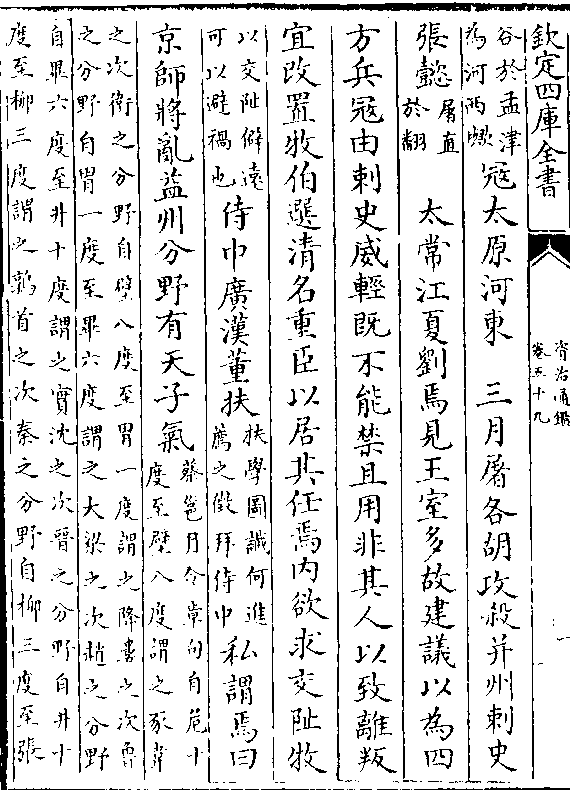 欽定四庫全書
資治通鑑
卷五十九
谷於孟津
為河西𧇊
寇太原河東　三月屠各胡攻殺并州刺史
張懿
屠直
於翻
太常江夏劉焉見王室多故建議以為四
方兵寇由刺史威輕既不能禁且用非其人以致離叛
宜改置牧伯選清名重臣以居其任焉內欲求交阯牧
以交阯僻遠
可以避禍也
侍中廣漢董扶
扶學圖讖何進
薦之徵拜侍中
私謂焉曰
京師將亂益州分野有天子氣
蔡邕月令章句自危十
度至壁八度謂之豕韋
之次衛之分野自壁八度至胃一度謂之降婁之次魯
之分野自胃一度至畢六度謂之大梁之次趙之分野
自畢六度至井十度謂之實沈之次晉之分野自井十
度至柳三度謂之鶉首之次秦之分野自柳三度至張